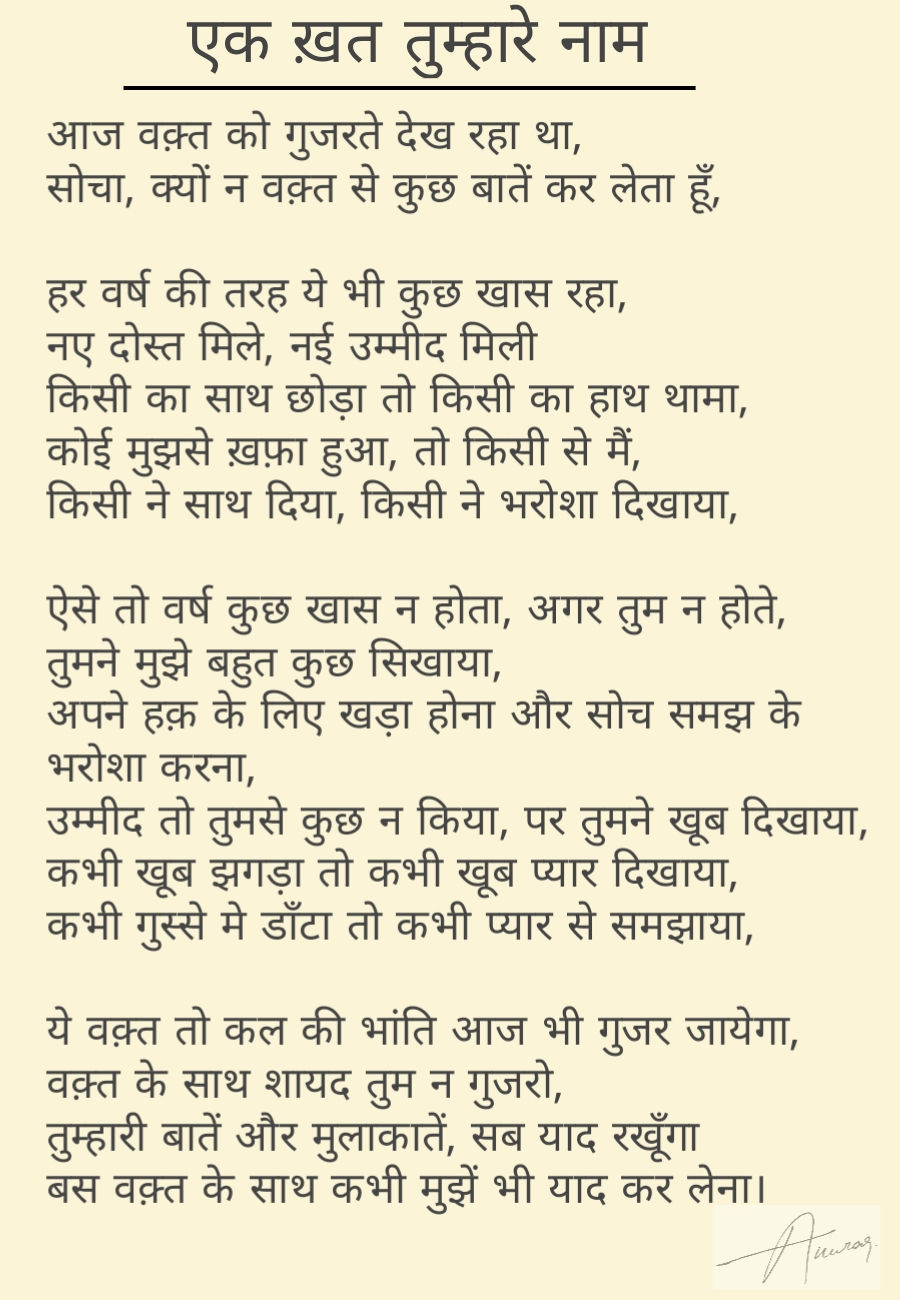 एक ख़त तुम्हारे नाम
आज वक़्त को गुजरते देख रहा था,
सोचा, क्यों न वक़्त से कुछ बातें कर लेता हूँ,
हर वर्ष की तरह ये भी कुछ खास रहा,
नए दोस्त मिले, नई उम्मीद मिली
किसी का साथ छोड़ा तो किसी का हाथ थामा,
कोई मुझसे ख़फ़ा हुआ, तो किसी से मैं,
किसी ने साथ दिया, किसी ने भरोशा दिखाया,
ऐसे तो वर्ष कुछ खास न होता, अगर तुम न होते,
तुमने मुझे बहुत कुछ सिखाया,
अपने हक़ के लिए खड़ा होना और सोच समझ के
भरोशा करना,
उम्मीद तो तुमसे कुछ न किया, पर तुमने खूब दिखाया,
कभी खूब झगड़ा तो कभी खूब प्यार दिखाया,
कभी गुस्से मे डाँटा तो कभी प्यार से समझाया,
ये वक़्त तो कल की भांति आज भी गुजर जायेगा,
वक़्त के साथ शायद तुम न गुजरो,
तुम्हारी बातें और मुलाकातें, सब याद रखूँगा
बस वक़्त के साथ कभी मुझें भी याद कर लेना।
Anurag